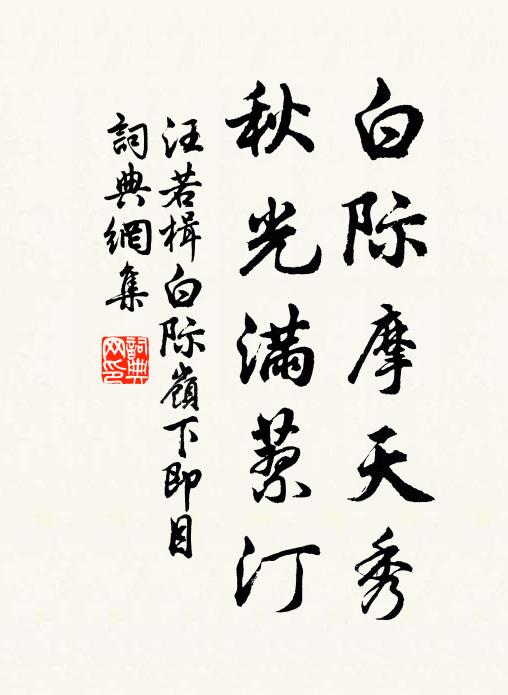 白际摩天秀
秋光满蓼汀
汪若楫白际嶺下即目
詞典網集
詞典網印